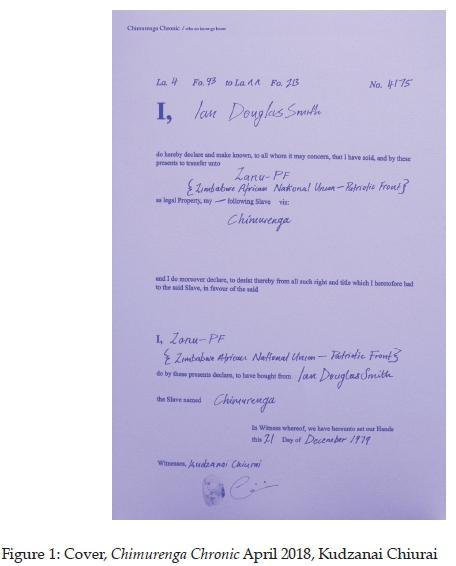 Chimurenga Chronic / who no know go know
La. 4 Fo. 93 to La. 11 Fo. 213 No. 4175
I, Ian Douglas Smith
do hereby declare and make known, to all whom it may concern, that I have sold, and by these
presents to transfer unto
Zanu-PF
{Zimbabwe African National Union – Patriotic Front}
as legal Property, my — following Slave viz:
Chimurenga
and I do moreover declare, to desist thereby from all such right and title which I heretofore had
to the said Slave, in favour of the said
I, Zanu-PF
{Zimbabwe African National Union – Patriotic Front}
do by these presents declare, to have bought from Ian Douglas Smith
the Slave named Chimurenga
In Witness whereof, we have hereunto set our Hands
this 21 Day of December 1979
Witnesses, Kudzanai Chiurai
Figure 1: Cover, Chimurenga Chronic April 2018, Kudzanai Chiurai